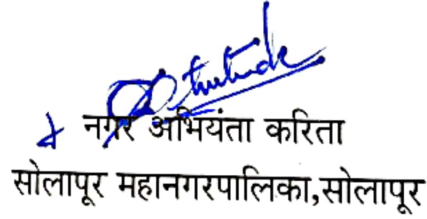 नगर अभियंता करिता
सोलापूर महानगरपालिका,सोलापूर